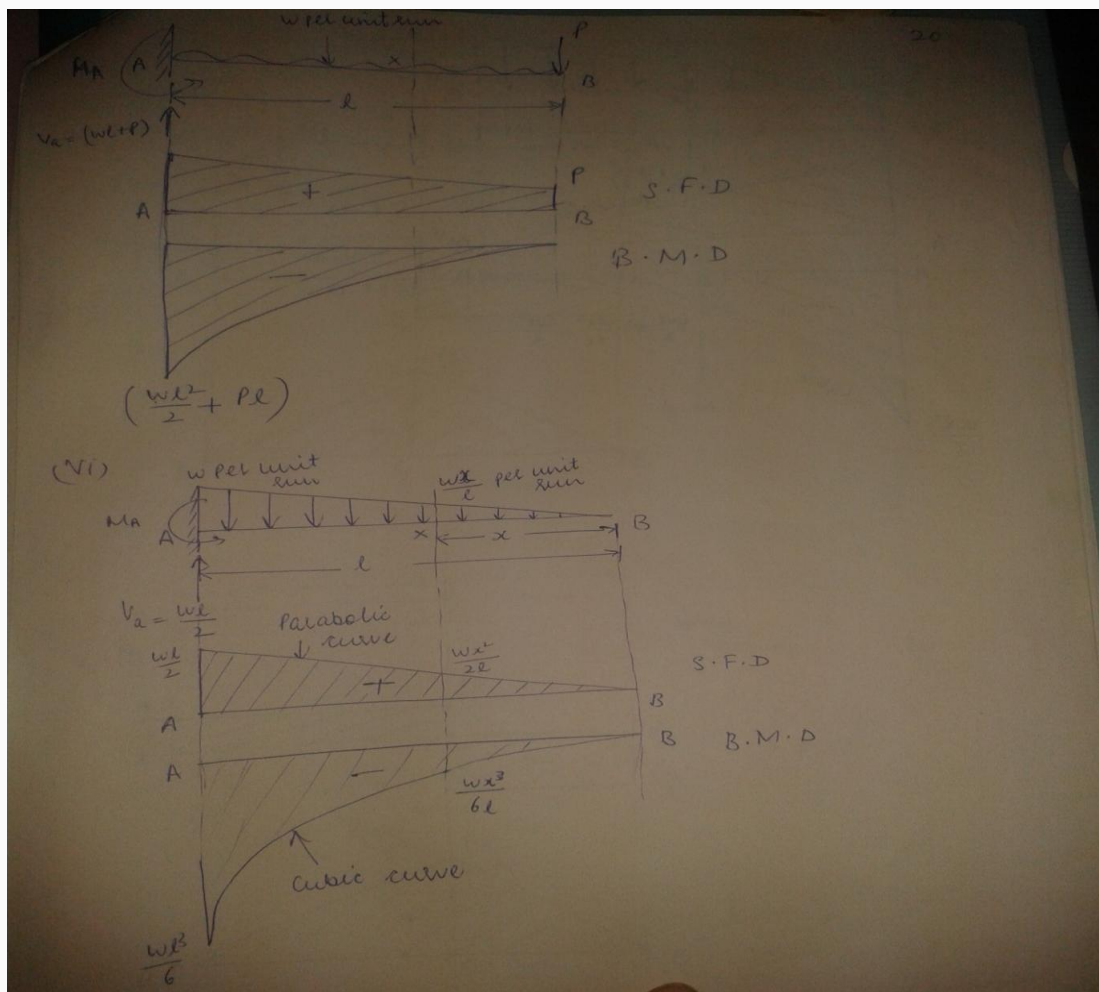 20
w per unit run
P
MA A x B
l
Va = (wl+P)
+ P
A B S.F.D
B.M.D
−
(wl²/2 + Pl)
(Vi) w per unit run
wx/l per unit run
MA A x x B
l
Va = wl/2
Parabolic curve
wl/2 + wx²/2l S.F.D
A B
A B B.M.D
−
wx³/6l
Cubic curve
wl³/6